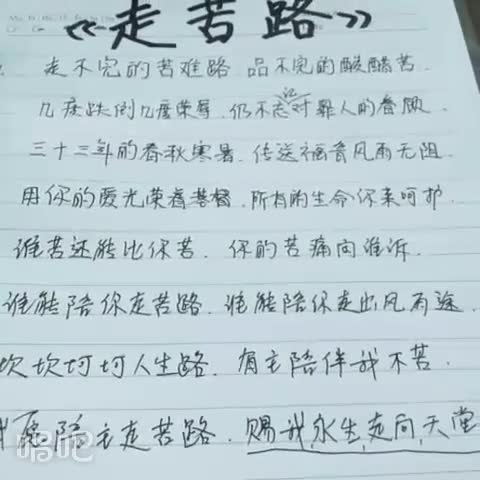 《走苦路》
走不完的苦难路 品不完的酸醋苦.
几度跌倒几度荣辱.仍不忘记对罪人的眷顾.
三十三年的春秋寒暑.传送福音风雨无阻.
用你的爱光荣着基督.所有的生命你来呵护.
谁苦还能比你苦.你的苦痛向谁诉.
谁能陪你走苦路.谁能陪你走出风雨途.
坎坎坷坷人生路.有主陪伴我不苦.
我愿陪主走苦路.赐我永生走向天堂
唱吧